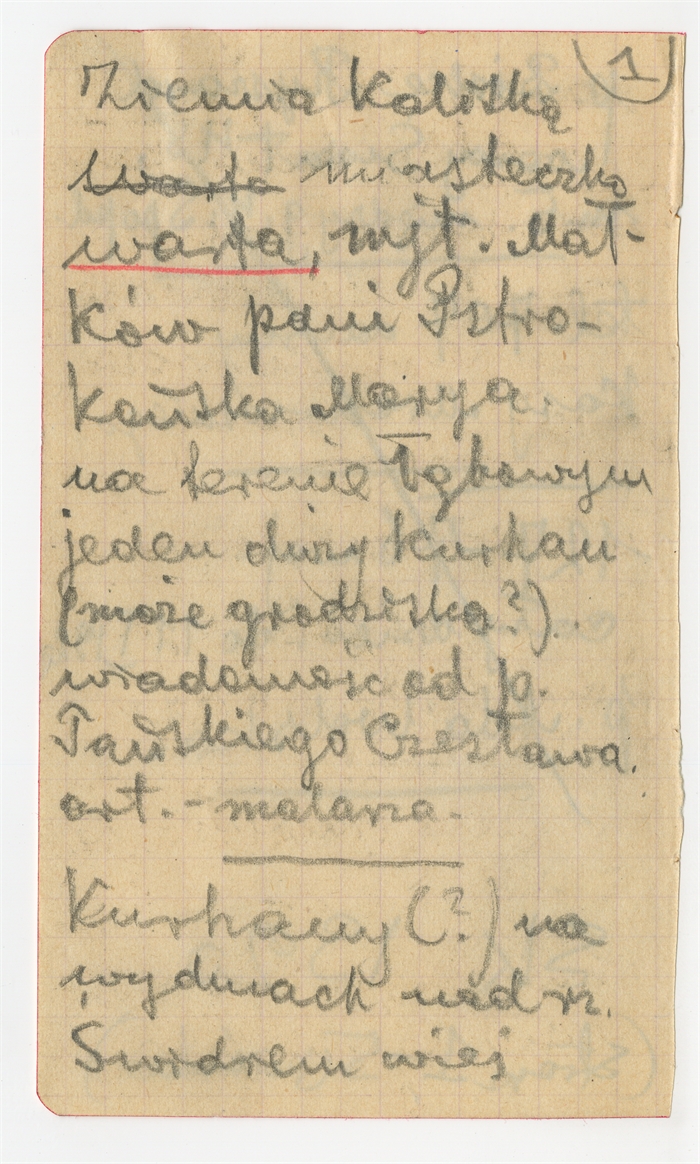 1
Ziemia Kaliska
Warta miasteczko
Warta, mjt. Mał-
ków pani Pstro-
końska Marya.
na terenie łąkowym
jeden duży kurhan
(może grodzisko?).
wiadomość od p.
Tańskiego Czesława.
art. - malarza.
Kurhany (?) na
wydmach nad rz.
Swidrem wieś